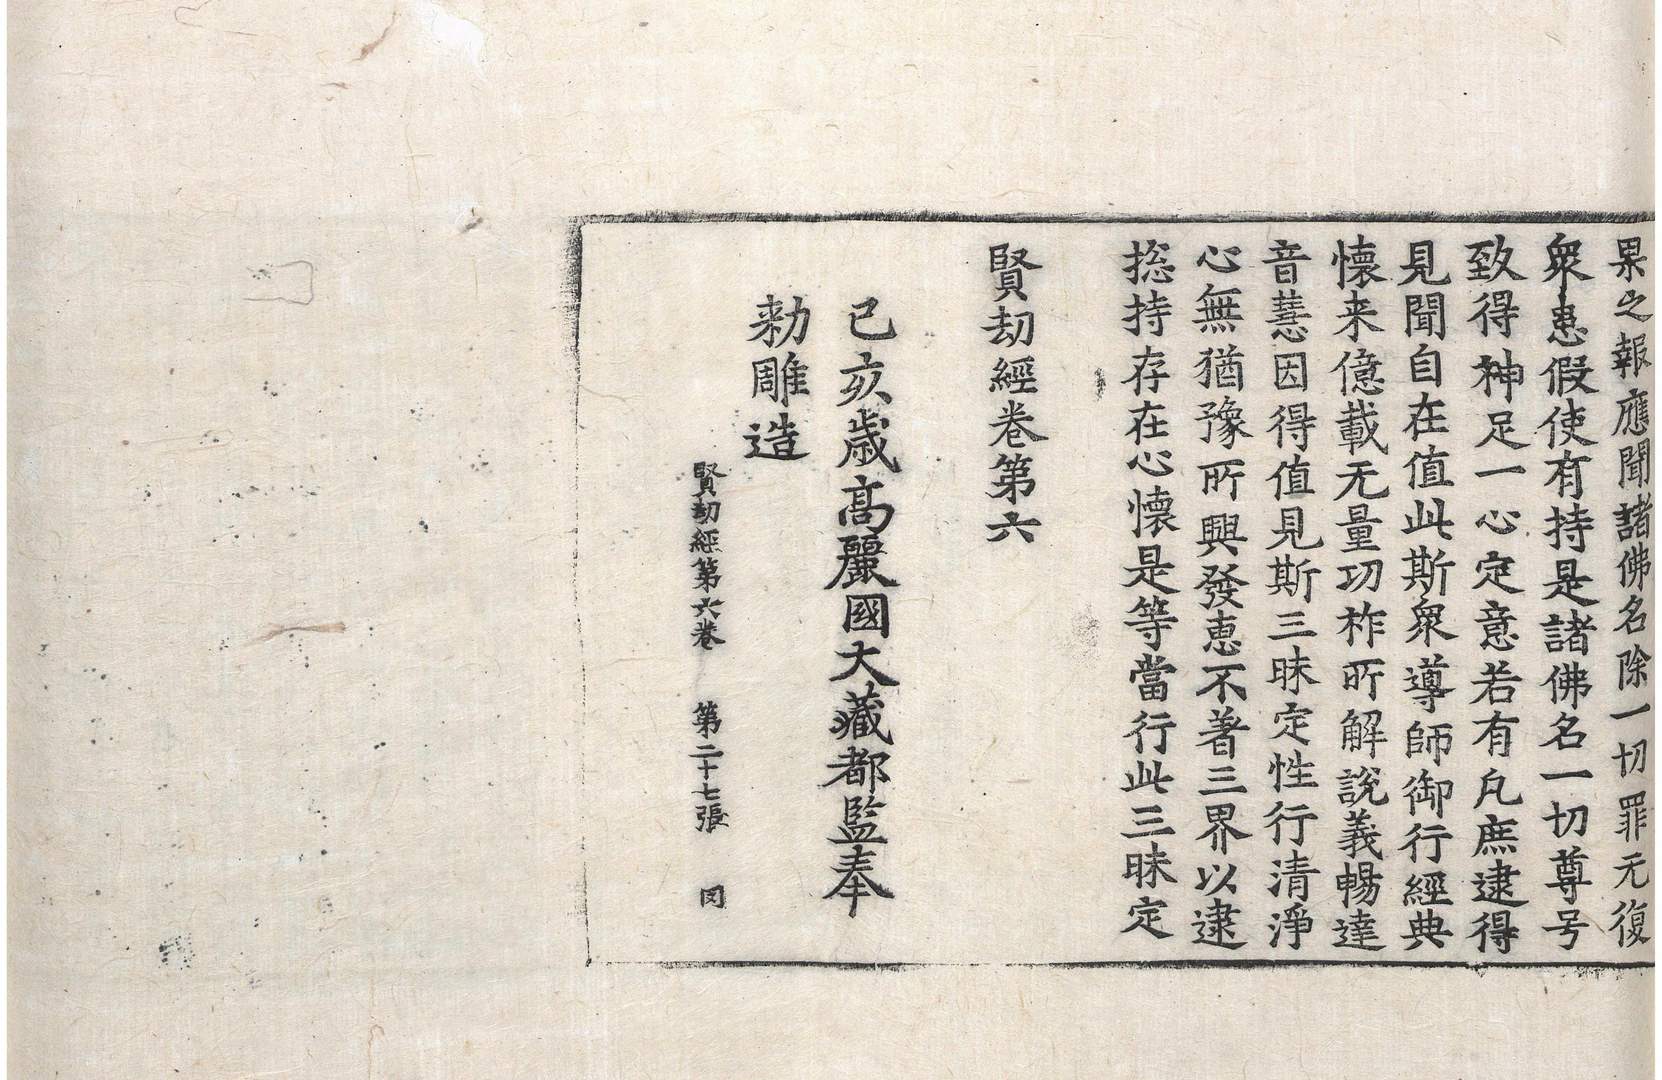 果之報應聞諸佛名除一切罪无復
衆患假使有持是諸佛名一切尊号
致得神足一心定意若有凡庶逮得
見聞自在值此斯衆導師御行經典
懐来億載无量功祚所解説義暢達
音慧因得值見斯三昧定性行清淨
心無猶豫所興發恵不著三界以逮
捴持存在心懐是等當行此三昧定
賢劫經卷第六
己亥歳高麗國大藏都監奉
勑雕造
賢劫經第六卷 第二十七張